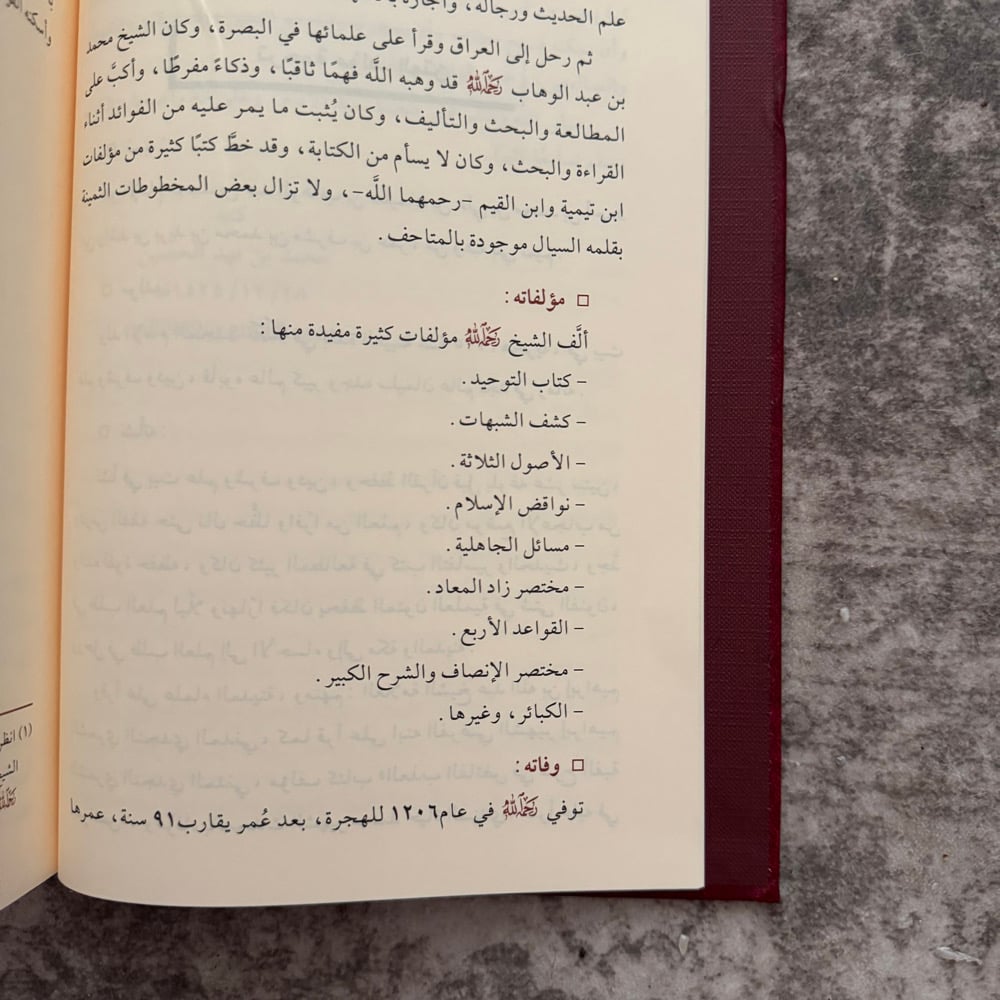 علم الحديث ورجاله، وأجازه
ثم رحل إلى العراق وقرأ على علمائها في البصرة، وكان الشيخ محمد
بن عبد الوهاب رَحِمَهُ اللَّهُ قد وهبه اللَّه فهمًا ثاقبًا، وذكاءً مفرطًا، وأكبَّ على
المطالعة والبحث والتأليف، وكان يُثبت ما يمر عليه من الفوائد أثناء
القراءة والبحث، وكان لا يسأم من الكتابة، وقد خطَّ كتبًا كثيرة من مؤلفات
ابن تيمية وابن القيم -رحمهما اللَّه-، ولا تزال بعض المخطوطات الثمينة
بقلمه السيال موجودة بالمتاحف.
□ مؤلفاته:
ألَّف الشيخ رَحِمَهُ اللَّهُ مؤلفات كثيرة مفيدة منها:
- كتاب التوحيد.
- كشف الشبهات.
- الأصول الثلاثة.
- نواقض الإسلام.
- مسائل الجاهلية.
- مختصر زاد المعاد.
- القواعد الأربع.
- مختصر الإنصاف والشرح الكبير.
- الكبائر، وغيرها.
□ وفاته:
توفي رَحِمَهُ اللَّهُ في عام١٢٠٦ للهجرة، بعد عُمر يقارب٩١ سنة، عمرها
(١) انظر